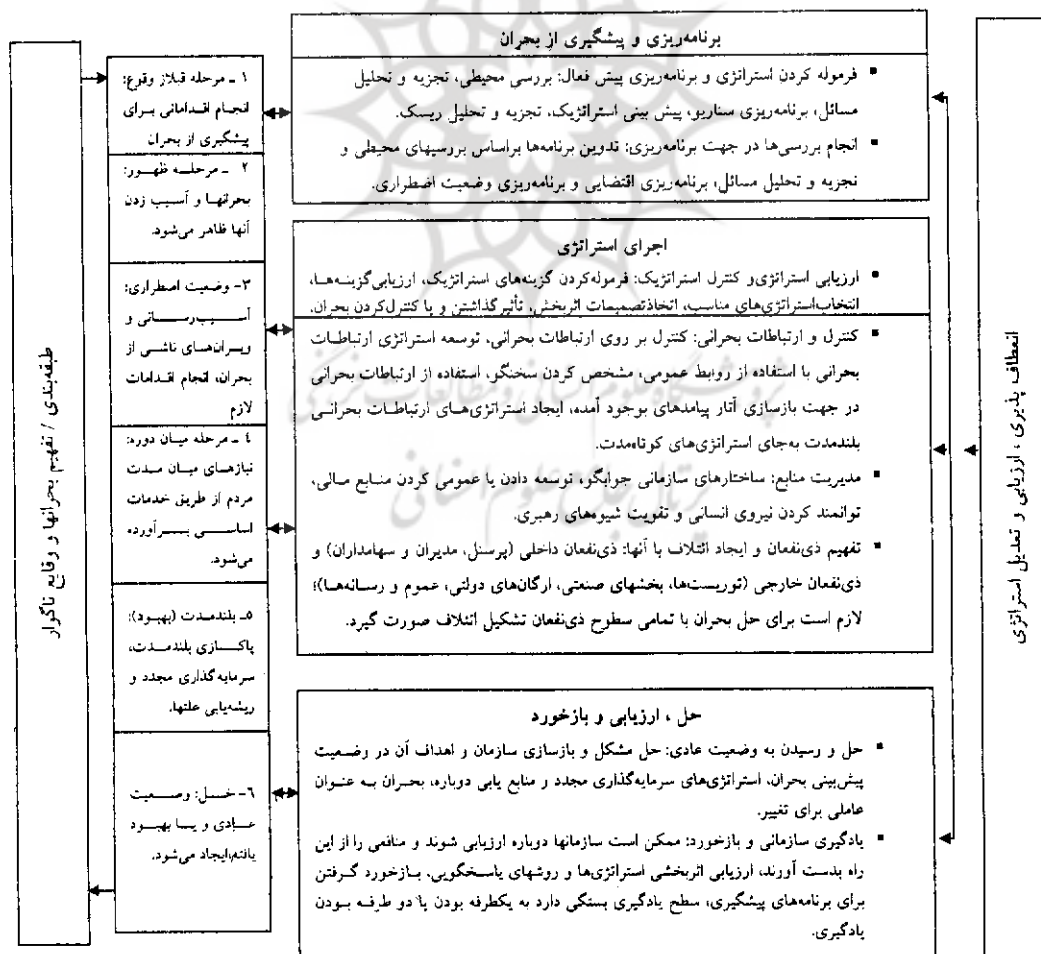 برنامه‌ریزی و پیشگیری از بحران
▪ فرموله کردن استراتژی و برنامه‌ریزی پیش فعال: بررسی محیطی، تجزیه و تحلیل
مسائل، برنامه‌ریزی سناریو، پیش بینی استراتژیک، تجزیه و تحلیل ریسک.
▪ انجام بررسی‌ها در جهت برنامه‌ریزی: تدوین برنامه‌ها براساس بررسیهای محیطی و
تجزیه و تحلیل مسائل، برنامه‌ریزی اقتضایی و برنامه‌ریزی وضعیت اضطراری.
اجرای استراتژی
▪ ارزیابی استراتژی و کنترل استراتژیک: فرموله‌کردن گزینه‌های استراتژیک، ارزیابی‌گزینه‌ها،
انتخاب‌استراتژی‌های مناسب، اتخاذتصمیمات اثربخش، تأثیرگذاشتن و یا کنترل‌کردن بحران.
▪ کنترل و ارتباطات بحرانی: کنترل بر روی ارتباطات بحرانی، توسعه استراتژی ارتباطات
بحرانی با استفاده از روابط عمومی، مشخص کردن سخنگو، استفاده از ارتباطات بحرانی
در جهت بازسازی آثار پیامدهای بوجود آمده، ایجاد استراتژی‌های ارتباطات بحرانی
بلندمدت به‌جای استراتژی‌های کوتاه‌مدت.
▪ مدیریت منابع: ساختارهای سازمانی جوابگو، توسعه دادن یا عمومی کردن منابع مالی،
توانمند کردن نیروی انسانی و تقویت شیوه‌های رهبری.
▪ تفهیم ذی‌نفعان و ایجاد ائتلاف با آنها: ذی‌نفعان داخلی (پرسنل، مدیران و سهامداران) و
ذی‌نفعان خارجی (توریست‌ها، بخشهای صنعتی، ارگان‌های دولتی، عموم و رسانه‌ها)؛
لازم است برای حل بحران با تمامی سطوح ذی‌نفعان تشکیل ائتلاف صورت گیرد.
حل ، ارزیابی و بازخورد
▪ حل و رسیدن به وضعیت عادی: حل مشکل و بازسازی سازمان و اهداف آن در وضعیت
پیش‌بینی بحران، استراتژی‌های سرمایه‌گذاری مجدد و منابع یابی دوباره، بحران به عنوان
عاملی برای تغییر.
▪ یادگیری سازمانی و بازخورد: ممکن است سازمانها دوباره ارزیابی شوند و منافعی را از این
راه بدست آورند، ارزیابی اثربخشی استراتژی‌ها و روشهای پاسخگویی، بازخورد گرفتن
برای برنامه‌های پیشگیری، سطح یادگیری بستگی دارد به یکطرفه بودن یا دو طرفه بودن
یادگیری.
۱ ـ مرحله قبل‌از وقوع:
انجام اقداماتی برای
پیشگیری از بحران
۲ ـ مرحله ظهور:
بحرانها و آسیب زدن
آنها ظاهر می‌شود.
۳- وضعیت اضطراری:
آسیب‌رسانی و
ویران‌های ناشی از
بحران، انجام اقدامات
لازم
۴ ـ مرحله میان دوره:
نیازهای میان مدت
مردم از طریق خدمات
اساسی برآورده
می‌شود.
۵ـ بلندمدت (بهبود):
پاکسازی بلندمدت،
سرمایه‌گذاری مجدد و
ریشه‌یابی علتها.
۶- حل: وضعیت
عادی و یا بهبود
یافته،ایجاد می‌شود.
طبقه‌بندی / تفهیم بحرانها و وقایع ناگوار
انعطاف پذیری ، ارزیابی و تعدیل استراتژی
پژوهشگاه علوم انسانی و مطالعات فرهنگی
پرتال جامع علوم انسانی